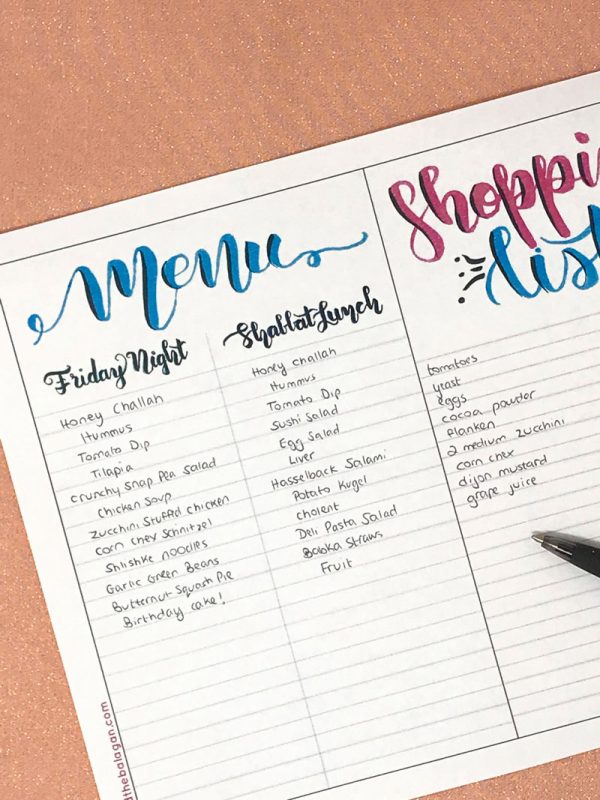 Menu
Friday Night
Honey Challah
Hummus
Tomato Dip
Tilapia
Crunchy Snap Pea Salad
Chicken Soup
Zucchini Stuffed Chicken
Corn Chex Schnitzel
Shlishke noodles
Garlic Green Beans
Butternut Squash Pie
Birthday cake!
Shabbat Lunch
Honey challah
Hummus
Tomato Dip
Sushi Salad
Egg Salad
Liver
Hasselback Salami
Potato Kugel
Cholent
Deli Pasta Salad
Babka Straws
Fruit
Shoppi
List
tomatoes
yeast
eggs
cocoa powder
flanken
2 medium zucchini
corn chex
dijon mustard
grape juice
thebalagan.com